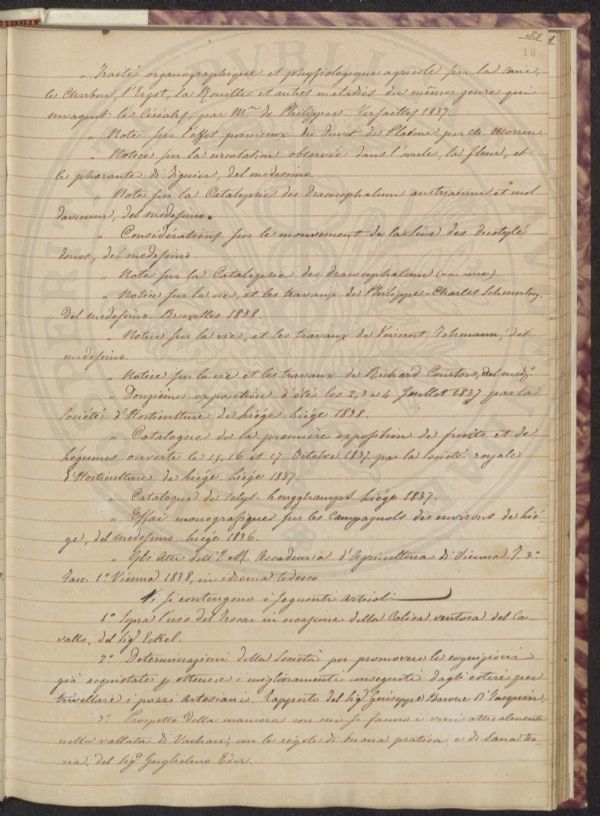 53
18
„ Traité organographique et physiologique agricole sur la carie,
le Charbon, l'Ergot, la Rouille et autres maladies du même genre qui
ravagent les Céréales, par M.me de Philippar. Versailles 1837.
„ Note sur l'effet pernicieux du duvet de Platane par Ch. Morren
„ Notice sur la circulation observée dans l'ovule, la fleur, et
le phorante di figuier, del medesimo.
„ Note sur la Catalepsie des dracocephalum austriacum et mol
davicum, del medesimo.
„ Considérations sur le mouvement de la Séve des dicotylé
dones, del medesimo
„ Note sur la Catalepsie des dracocephalum
„ Notice sur la vie, et les travaux de Philippe-Charles Schmerling,
del medesimo. Bruxelles 1838.
„ Notice sur la vie, et les travaux de Vincent Fohmann, del
medesimo
„ Notice sur la vie et les travaux de Richard Courtois, del med.mo
„ Douzième exposition d'été les 2, 3 e 4 Juillet 1837 par la
Société d'Horticulture de Liége. Liége 1838.
„ Catalogue de la première exposition de fruits et de
Légumes ouverte le 15, 16 et 17 Octobre 1837 par la Société royale
d'Horticulture de Liége. Liége 1837.
Catalogue de Selys-Longchamps Liége 1837.
„ Essai monografique sur les Campagnols des environs de Lié-
ge, del medesimo. Liége 1836.
„ Gli Atti dell'I. e R. Accademia d'Agricoltura di Vienna T. 3.o
Fasc. 1.o Vienna 1838, in idioma tedesco
Vi si contengono i seguenti Articoli
1.o Sopra l'uso del Trocar in occasione della Colica ventosa del Ca-
vallo, del Sig. Eckel.
2.o Determinazioni della Società per promovere le cognizioni
già acquistate e ottenere i miglioramenti conseguiti dagli esteri per
trivellare i pozzi Artesiani. Rapporto del Sig. Giuseppe Barone di Jacquin.
3.o Prospetto della maniera con cui si fanno i vini attualmente
nella vallata di Vachau, con le regole di buona pratica e di sana teo-
ria, del Sig. Guglielmo Eder.